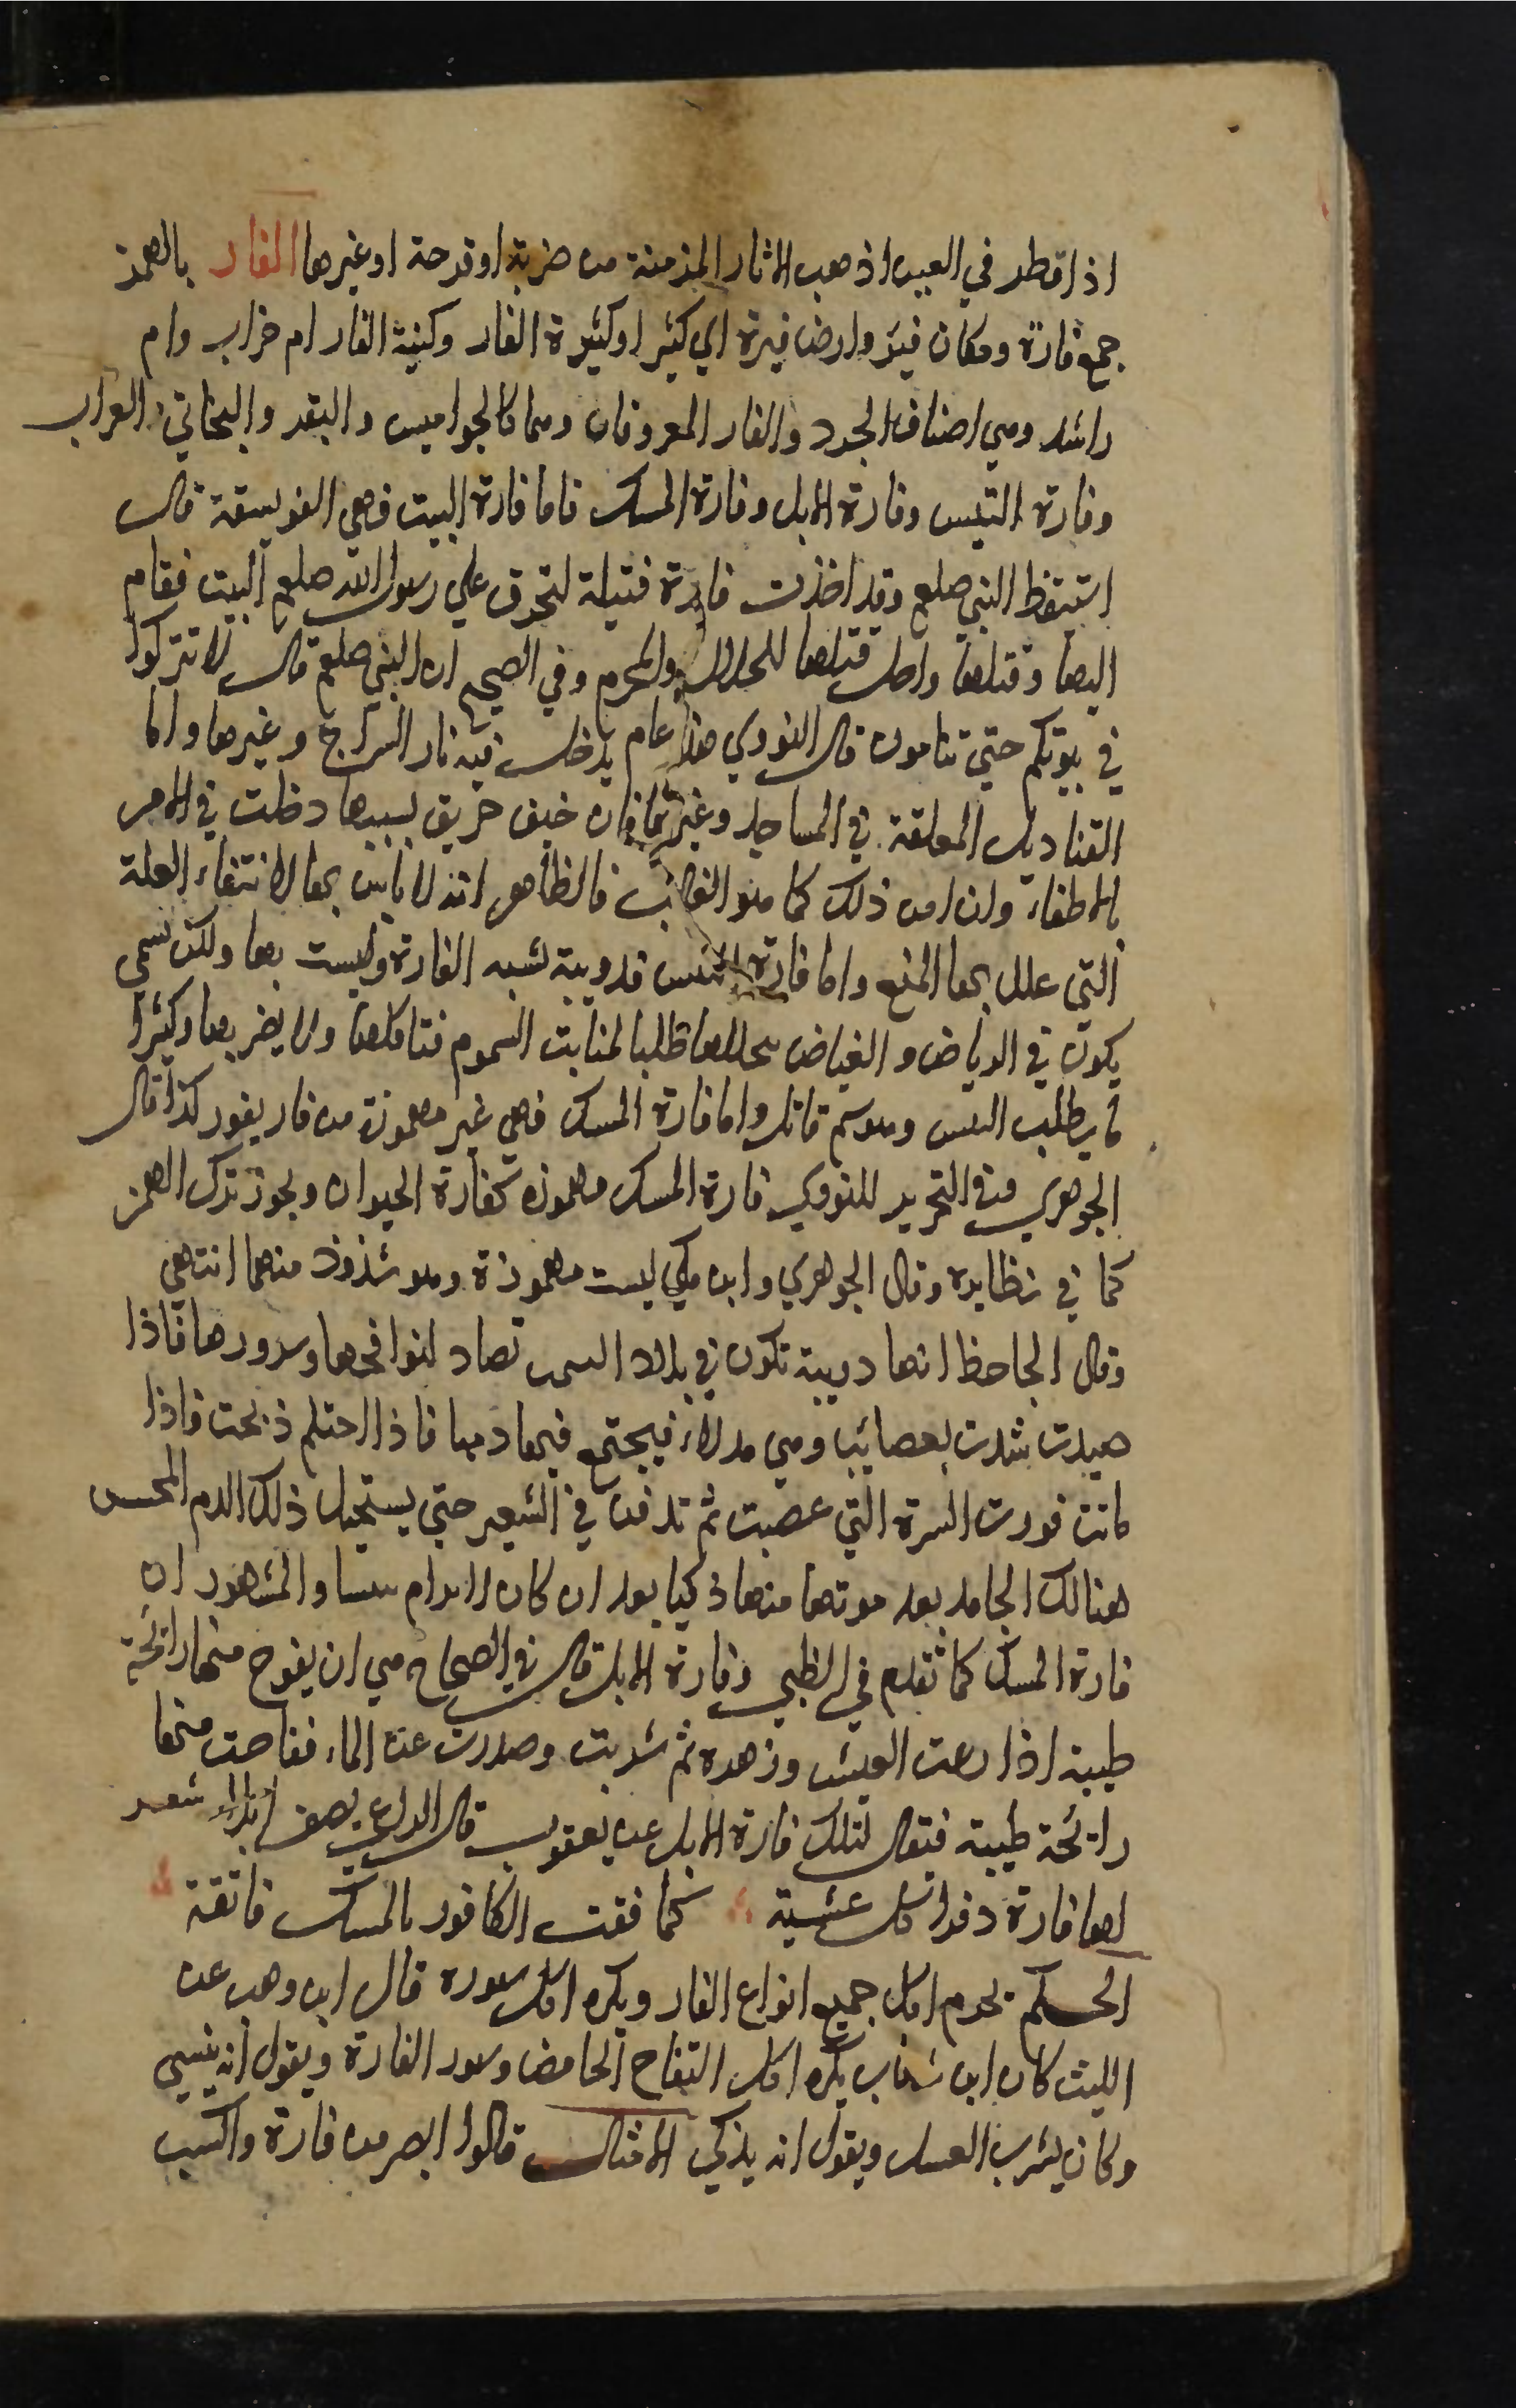 اذا قطر في العين اذهب الاثار المزمنة من ضربة او قرحة او غيرها الفار بالهمز
جمع فارة ومكان فيئر وارض فيرة اي كثير او كثيرة الفار وكنية الفار ام خراب وام
راشد وهي اصناف الجرد والفار المعروفان وهما كالجواميس والبقر والبخاتي والعراب
وفارة التيس وفارة الابل وفارة المسك فاما فارة البيت فهي الفويسقة قال
استيقظ النبي صلعم وقد اخذت فارة فتيلة لتحرق علي رسول الله صلعم البيت فقام
اليها وقتلها واحل قتلها للحلال والمحرم وفي الصحيح ان النبي صلعم قال لا تتركوا
في بيوتكم حتي تنامون قال النووي هذا عام يدخل فيه نار السراج وغيرها واما
القناديل المعلقة في المساجد وغيرها فان خيف حريق بسببها دخلت في الامر
بالاطفاء وان امن ذلك كما هو الغالب فالظاهر انه لا باس بها لانتفاء العلة
التي علل بها المنع واما فارة التيس فدويبة تشبه الفارة وليست بها ولكن تسمي
يكون في الرياض والغياض طلبا لمنابت السموم فتاكلها ولا يضر بها وكثيرا
ما يطلب البيس وهو سم قاتل واما فارة المسك فهي غير مهموزة من فار يفور كذا قال
الجوهري وفي التحرير للنووي فارة المسك مهموزه كفارة الحيوان ويجوز ترك الهمز
كما في نظايره وقال الجوهري وابن مكي ليست مهموزة وهو شذوذ منهما انتهي
وقال الجاحظ انها دويبة تكون في بلاد التبت تصاد لنوافجها وسرورها فاذا
صيدت شدت بعصائب وهي مدلاء فيجتمع فيها دمها فاذا احتلم ذبحت فاذا
ماتت قورت السرة التي عصبت ثم تدفن في الشعير حتي يستحيل ذلك الدم المحتبس
هنالك الجامد بعد موتها منها ذكيا بعد ان كان لا يرام نتنا والمشهور ان
فارة المسك كما تقدم في الظبي وفارة الابل قال في الصحاح هي ان يفوح منها رائحة
طيبة اذا رعت العيش وزهره ثم شربت وصدرت عن الماء ففاحت منها
رائحة طيبة فيقال لتلك فارة الابل عن يعقوب قال الراعي يصف ابلا شعر
لها فارة دفرا كل عشية كما فتقت الكافور بالمسك فاتقة
الحكم يحرم اكل جميع انواع الفار ويكره اكل سوره قال ابن وهب عن
الليث كان ابن شهاب يكره اكل التفاح الحامض وسور الفارة ويقول انه ينسي
وكان يشرب العسل ويقول انه يذكي الامثال قالوا ابصر من فارة واكسب